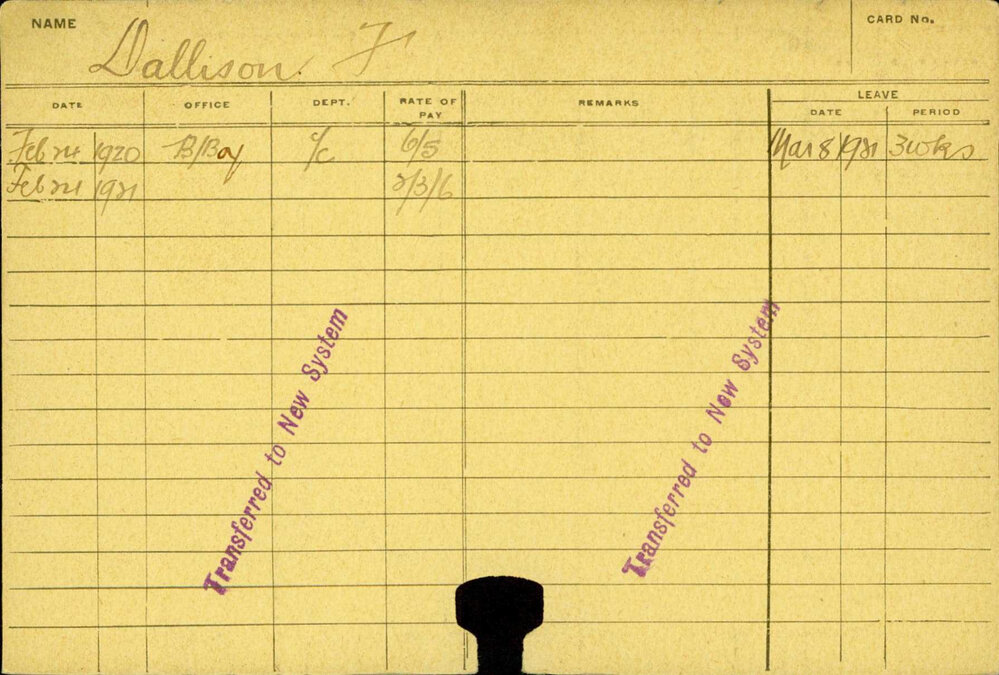 NAME Dallison. F CARD No.
DATE OFFICE DEPT. RATE OF PAY REMARKS LEAVE DATE PERIOD
Feb 24 1920 B/Bay c/c 6/5 Mar 8 1921 3 wks
Feb 24 1921 2/3/6
Transferred to New System
Transferred to New System